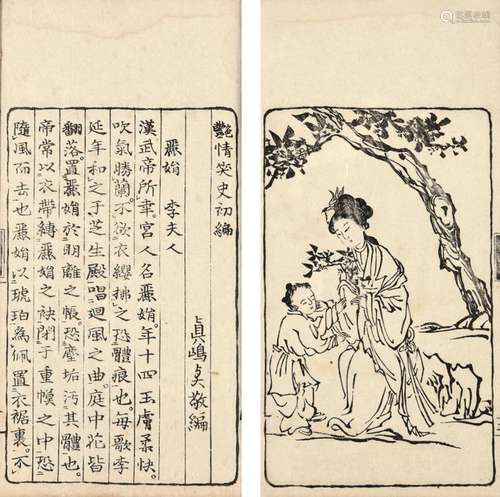 艷情笑史初編
眞嶋敬編
麗娟 李夫人
漢武帝所幸宮人名麗娟。年十四玉膚柔快。
吹氣勝蘭。不欲衣纓拂之恐體痕也。每歌李
延年和之于芝生殿唱迴風之曲。庭中花皆
翻落。置麗娟於明離之帳。恐塵垢汚其體也。
帝常以衣帶縛麗娟之袂閉于重幙之中恐
隨風而去也麗娟以琥珀爲佩置衣裾裏。不